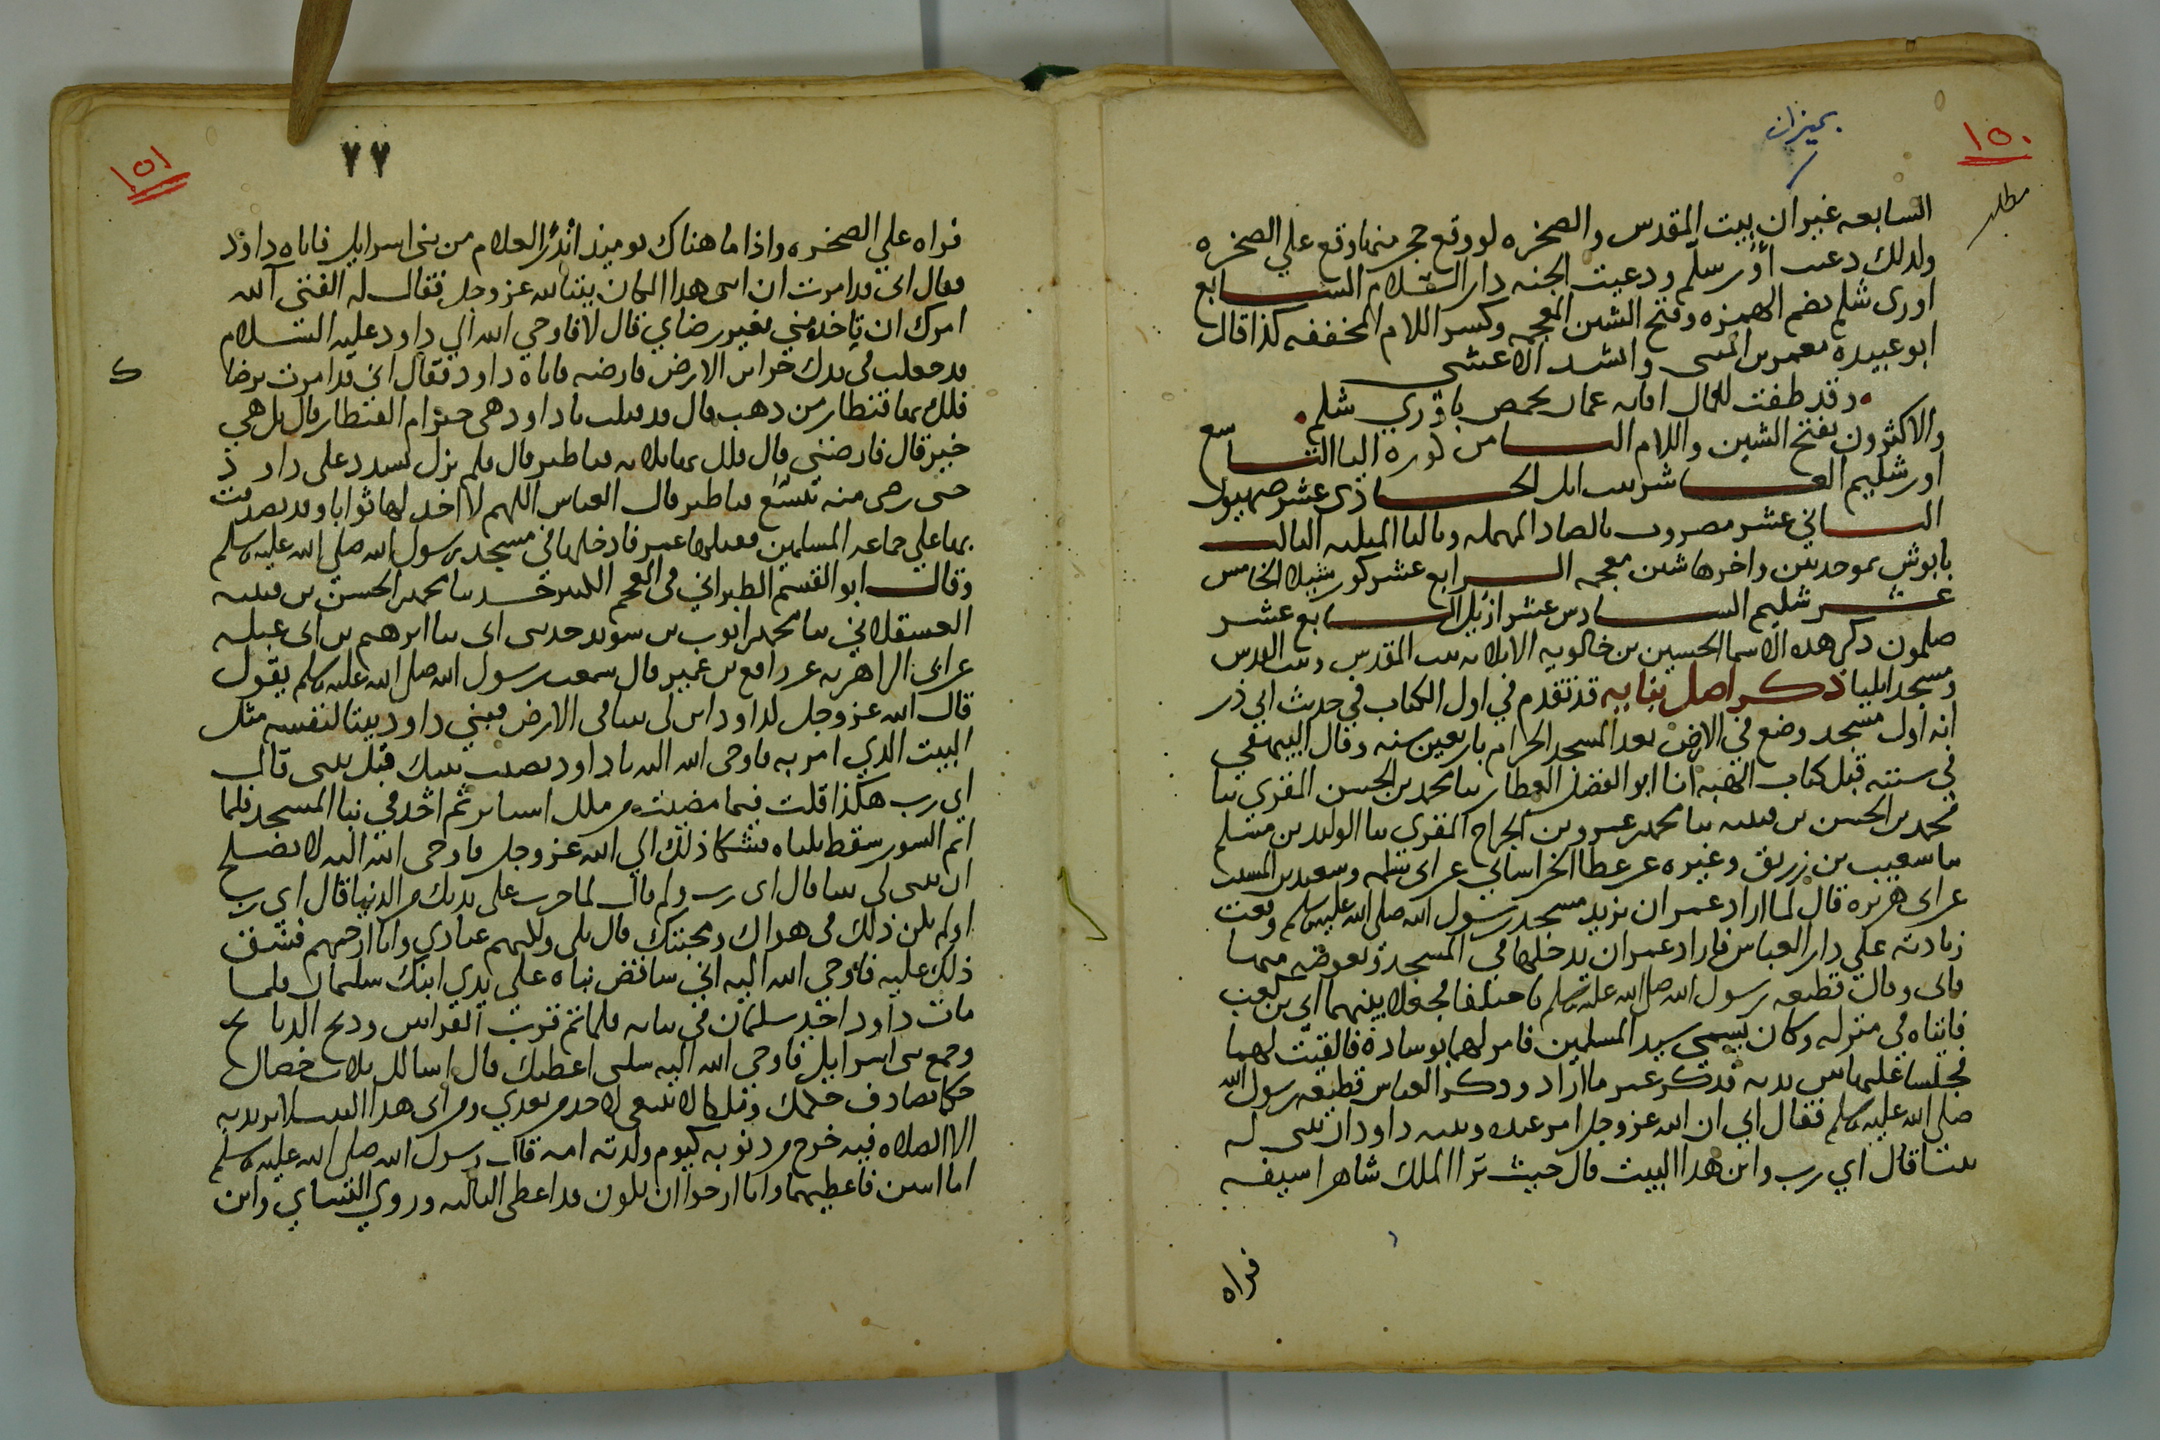 ١٥٠
بميزان
مطلب
السابعه غير ان بيت المقدس والصخره لو وقع حجر منها وقع علي الصخره
ولذلك دعيت أورسلم ودعيت الجنه دار السلام السابع
اورى شلم بضم الهمزه وفتح الشين المعجمه وكسر اللام المخففه كذا قال
ابو عبيده معمر بن المثنى وانشد الاعشى
وقد طفت للمال افاقه عمان فحمص باوري شلم
والاكثرون بفتح الشين واللام الثامن كوره اليا التاسع
اورشليم العاشر بيت ايل الحادى عشر صهيون
الثاني عشر مصروث بالصاد المهمله وبالثا المثلثه الثالث
بابوش بموحدتين واخرها شين معجمه الرابع عشر كورشيلا الخامس
عشر شليم السادس عشر ازيل السابع عشر
صلمون ذكر هذه الاسما الحسين بن خالويه الا ثلاثه بيت المقدس وبيت القدس
ومسجد ايليا ذكر اصل بنايه قد تقدم في اول الكتاب في حديث ابي ذر
انه اول مسجد وضع في الارض بعد المسجد الحرام باربعين سنه وقال البيهقي
في سننه قبل كتاب الهبه انا ابو الفضل العطار ثنا محمد بن الحسن المقري ثنا
محمد بن الحسن بن قتيبه ثنا محمد بن عمرو بن الجراح المقري ثنا الوليد بن مسلم
ثنا شعيب بن زريق وغيره عن عطا الخراساني عن ابى سلمه وسعيد بن المسيب
عن ابى هريره قال لما اراد عمر ان يزيد مسجد رسول الله صلى الله عليه وسلم وقعت
زيادته علي دار العباس فاراد عمر ان يدخلها في المسجد ويعوضه منها
فابى وقال قطيعه رسول الله صلى الله عليه وسلم فاختلفا فجعلا بينهما ابي بن كعب
فاتياه في منزله وكان يسمي سيد المسلمين فامر لهما بوسادة فالقيت لهما
فجلسا عليها بين يديه فذكر عمر ما اراد وذكر العباس قطيعه رسول الله
صلى الله عليه وسلم فقال ابي ان الله عز وجل امر عبده ونبيه داود ان يبنى له
بيتا قال اي رب واين هذا البيت قال حيث ترا الملك شاهرا سيفه
فراه
١٥١
٧٧
فراه علي الصخره واذا ما هناك يوميذ اندر لغلام من بنى اسرايل فاتاه داود
فقال انى قد امرت ان ابنى هذا المكان بيتا لله عز وجل فقال له الفتى آلله
امرك ان تاخذه مني بغير رضاي قال لا فاوحي الله الي داود عليه السلام
قد جعلت في يدك خزاين الارض فارضه فاتاه داود فقال اني قد امرت برضا
فلك بها قنطار من ذهب قال قد قبلت يا داود هى خير ام القنطار قال بل هي
خير قال فارضني قال فلك بها ثلاثه قناطير قال فلم يزل يشدد على داود
حتى رضى منه بتسع قناطير قال العباس اللهم لا اخذ لها ثوابا وقد تصدقت
بها علي جماعه المسلمين فقبلها عمر فادخلها في مسجد رسول الله صلى الله عليه وسلم
وقال ابو القسم الطبراني في المعجم الكبير ثنا محمد بن الحسن بن قتيبه
العسقلاني ثنا محمد بن ايوب بن سويد حدثنى ابى ثنا ابرهيم بن ابى عبله
عن ابى الزاهريه عن رافع بن عمير قال سمعت رسول الله صلى الله عليه وسلم يقول
قال الله عز وجل لداود ابن لى بيتا فى الارض فبني داود بيتا لنفسه مثل
البيت الذي امر به فاوحى الله اليه يا داود نصبت بيتك قبل بيتى قال
اي رب هكذا قلت فيما قضيت من ملك استاثر ثم اخذ في بنا المسجد فلما
اتم السور سقط ثلثاه فشكا ذلك الي الله عز وجل فاوحى الله اليه لا يصلح
ان تبنى لى بيتا قال اى رب ولم قال لما جرت على يديك من الدما قال اي رب
اولم يكن ذلك فى هواك ومحبتك قال بلى ولكنهم عبادي وانا ارحمهم فشق
ذلك عليه فاوحي الله اليه اني ساقضي بناه علي يدي ابنك سليمان فلما
مات داود اخذ سليمان في بنايه فلما تم قرب القرابين وذبح الذبايح
وجمع بنى اسرايل فاوحي الله اليه سلنى اعطك قال اسالك ثلاث خصال
حكما يصادف حكمك وملكا لا ينبغى لاحد من بعدي ومن اتى هذا البيت لا يريد به
الا الصلاه فيه خرج من ذنوبه كيوم ولدته امه قال رسول الله صلى الله عليه وسلم
اما اثنين فاعطيهما وانا ارجوا ان يكون قد اعطى الثالثه وروي النساي وابن